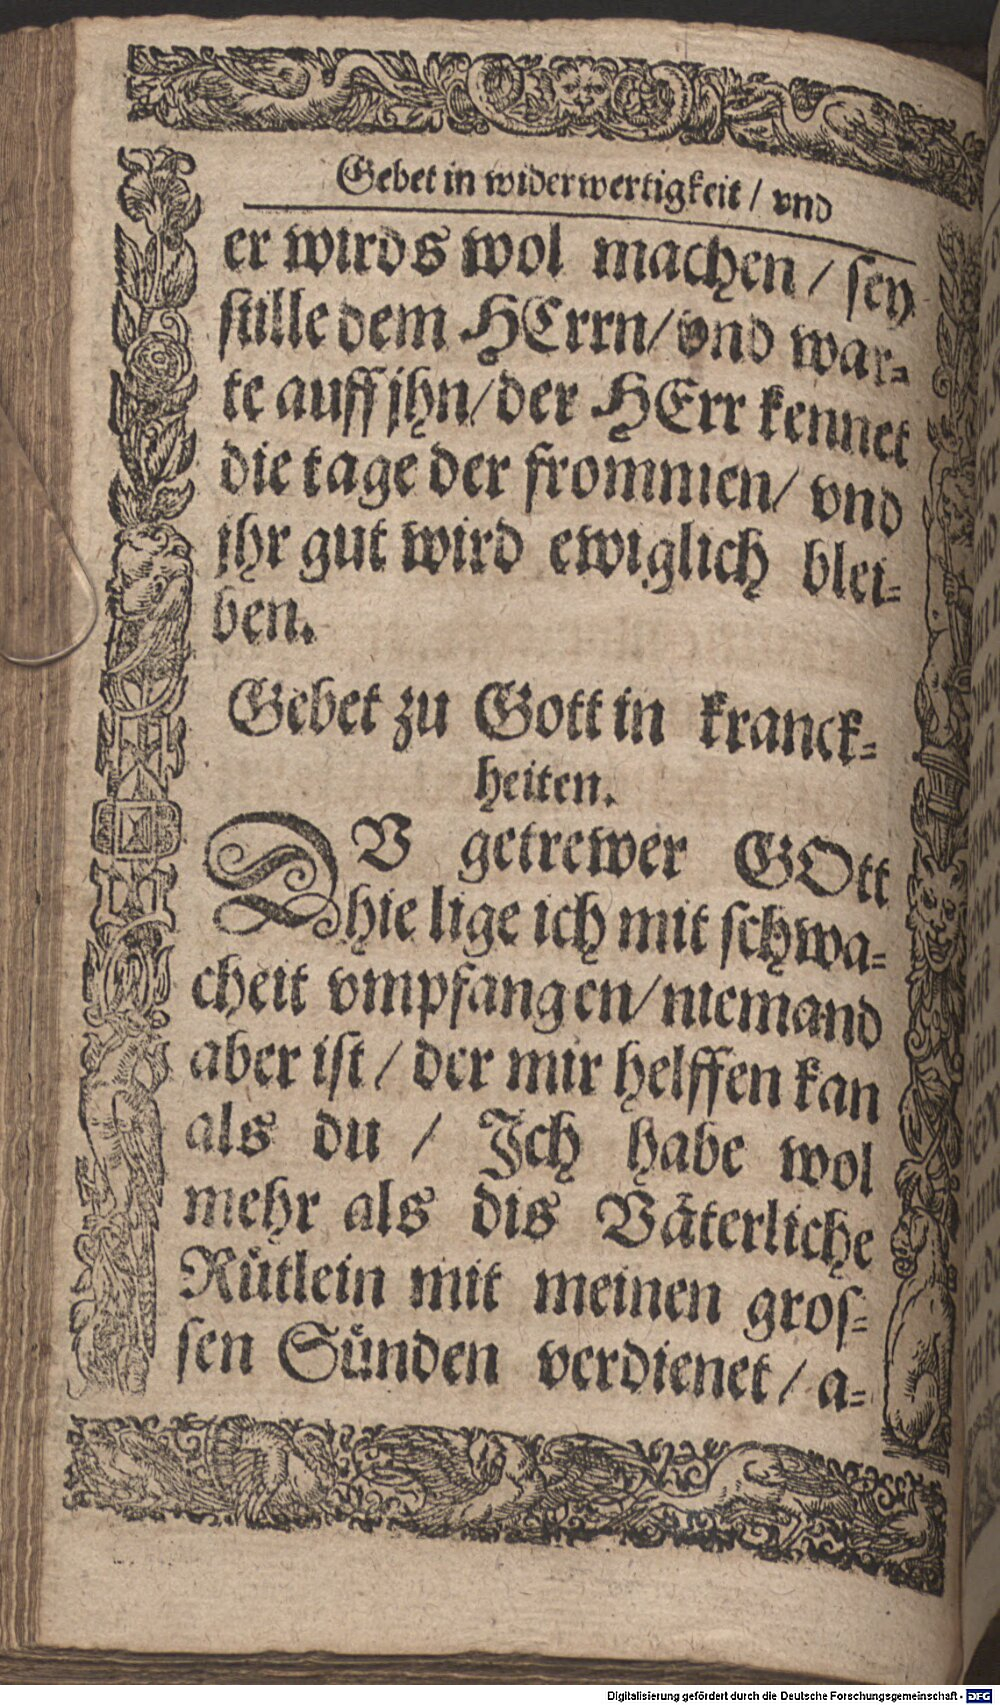 Gebet in widerwertigkeit / vnd
er wirds wol machen / sey
stille dem HErrn / vnd war-
te auff jhn / der HErr kennet
die tage der frommen / vnd
jhr gut wird ewiglich blei-
ben.
Gebet zu Gott in kranck-
heiten.
DV getrewer GOtt
hie lige ich mit schwa-
cheit vmpfangen / niemand
aber ist / der mir helffen kan
als du / Ich habe wol
mehr als dis Väterliche
Rütlein mit meinen gros-
sen Sünden verdienet / a-
Digitalisierung gefördert durch die Deutsche Forschungsgemeinschaft - DFG